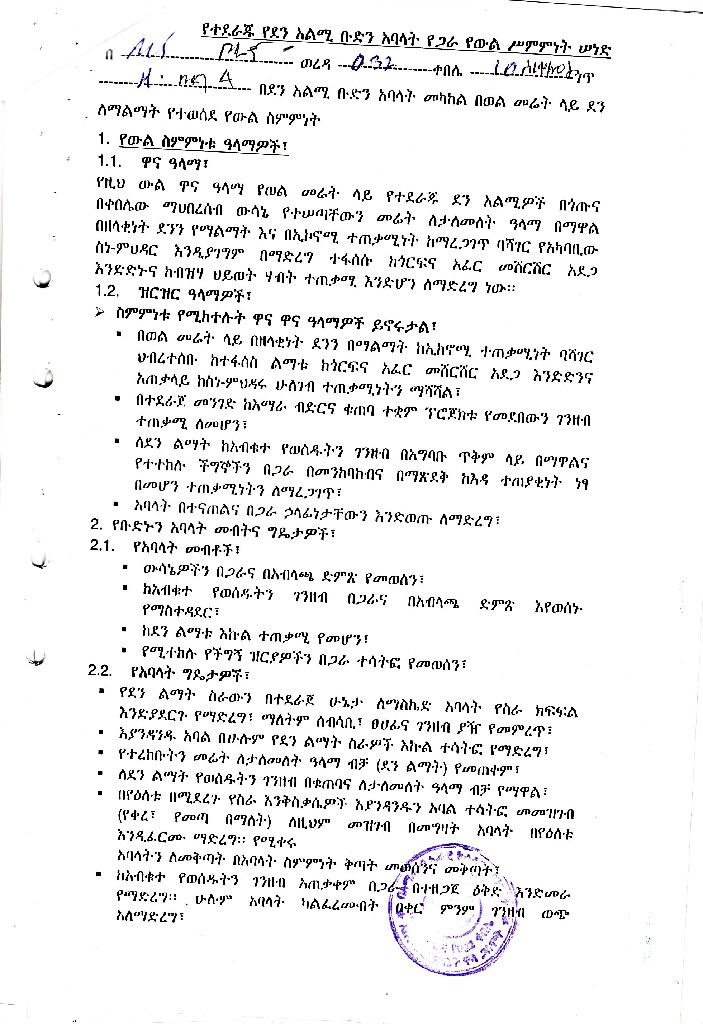 የተደራጁ የደን አልሚ ቡድን አባላት የጋራ የውል ሥምምነት ሠነድ
በ ወረዳ 032 ቀበሌ 10
በደን አልሚ ቡድን አባላት መካከል በወል መሬት ላይ ደን
ለማልማት የተወሰደ የውል ስምምነት
1. የውል ስምምነቱ ዓላማዎች፤
1.1. ዋና ዓላማ፤
የዚህ ውል ዋና ዓላማ የወል መሬት ላይ የተደራጁ ደን አልሚዎች በጎጡና
በቀበሌው ማህበረሰብ ውሳኔ የተሠጣቸውን መሬት ለታለመለት ዓላማ በማዋል
በዘላቂነት ደንን የማልማት እና በኢኮኖሚ ተጠቃሚነት ከማረጋገጥ ባሻገር የአካባቢው
ስነ-ምህዳር እንዲያገግም በማድረግ ተፋሰሱ ከጎርፍና አፈር መሸርሸር አደጋ
እንድድኑና ከብዝሃ ህይወት ሃብት ተጠቃሚ እንድሆን ለማድረግ ነው።
1.2. ዝርዝር ዓላማዎች፤
➢ ስምምነቱ የሚከተሉት ዋና ዋና ዓላማዎች ይኖሩታል፤
▪ በወል መሬት ላይ በዘላቂነት ደንን በማልማት ከኢኮኖሚ ተጠቃሚነት ባሻገር
ህብረተሰቡ ከተፋሰስ ልማቱ ከጎርፍና አፈር መሸርሸር አደጋ እንድድንና
አጠቃላይ ከስነ-ምህዳሩ ሁለገብ ተጠቃሚነትን ማሻሻል፤
▪ በተደራጀ መንገድ ከአማራ ብድርና ቁጠባ ተቋም ፕሮጀክቱ የመደበውን ገንዘብ
ተጠቃሚ ለመሆን፤
▪ ለደን ልማት ከአብቁተ የወሰዱትን ገንዘብ በአግባቡ ጥቅም ላይ በማዋልና
የተተከሉ ችግኞችን በጋራ በመንከባከብና በማጽደቅ ከእዳ ተጠያቂነት ነፃ
በመሆን ተጠቃሚነትን ለማረጋገጥ፤
▪ አባላት በተናጠልና በጋራ ኃላፊነታቸውን እንድወጡ ለማድረግ፤
2. የቡድኑን አባላት መብትና ግዴታዎች፤
2.1. የአባላት መብቶች፤
▪ ውሳኔዎችን በጋራና በአብላጫ ድምጽ የመወሰን፤
▪ ከአብቁተ የወሰዱትን ገንዘብ በጋራና በአብላጫ ድምጽ እየወሰኑ
የማስተዳደር፤
▪ ከደን ልማቱ እኩል ተጠቃሚ የመሆን፤
▪ የሚተከሉ የችግኝ ዝርያዎችን በጋራ ተሳትፎ የመወሰን፤
2.2. የአባላት ግዴታዎች፤
▪ የደን ልማት ስራውን በተደራጀ ሁኔታ ለማስኬድ አባላት የስራ ክፍፍል
እንድያደርጉ የማድረግ፤ ማለትም ሰብሳቢ፤ ፀሀፊና ገንዘብ ያዥ የመምረጥ፤
▪ እያንዳንዱ አባል በሁሉም የደን ልማት ስራዎች እኩል ተሳትፎ የማድረግ፤
▪ የተረከቡትን መሬት ለታለመለት ዓላማ ብቻ (ደን ልማት) የመጠቀም፤
▪ ለደን ልማት የወሰዱትን ገንዘብ በቁጠባና ለታለመለት ዓላማ ብቻ የማዋል፤
▪ በየዕለቱ በሚደረጉ የስራ እንቅስቃሴዎች እያንዳንዱን አባል ተሳትፎ መመዝገብ
(የቀረ፤ የመጣ በማለት) ለዚህም መዝገብ በመግዛት አባላት በየዕለቱ
እንዲፈርሙ ማድረግ። የሚቀሩ
አባላትን ለመቅጣት በአባላት ስምምነት ቅጣት መወሰንና መቅጣት፤
▪ ከአብቁተ የወሰዱትን ገንዘብ አጠቃቀም በጋራ በተዘጋጀ ዕቅድ እንድመራ
የማድረግ። ሁሉም አባላት ካልፈረሙበት በቀር ምንም ገንዘብ ወጭ
አለማድረግ፤